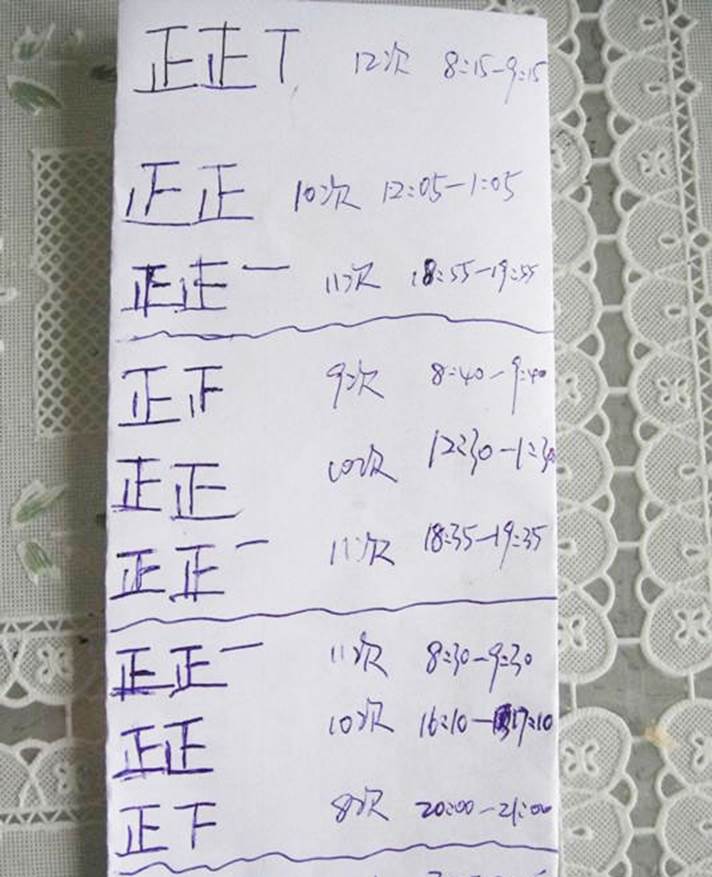 正正丅 12次 8:15-9:15
正正 10次 12:05-1:05
正正一 11次 18:55-19:55
正正 9次 8:40-9:40
正正 10次 12:30-1:30
正正一 11次 18:35-19:35
正正一 11次 8:30-9:30
正正 10次 16:10-17:10
正下 8次 20:00-21:00